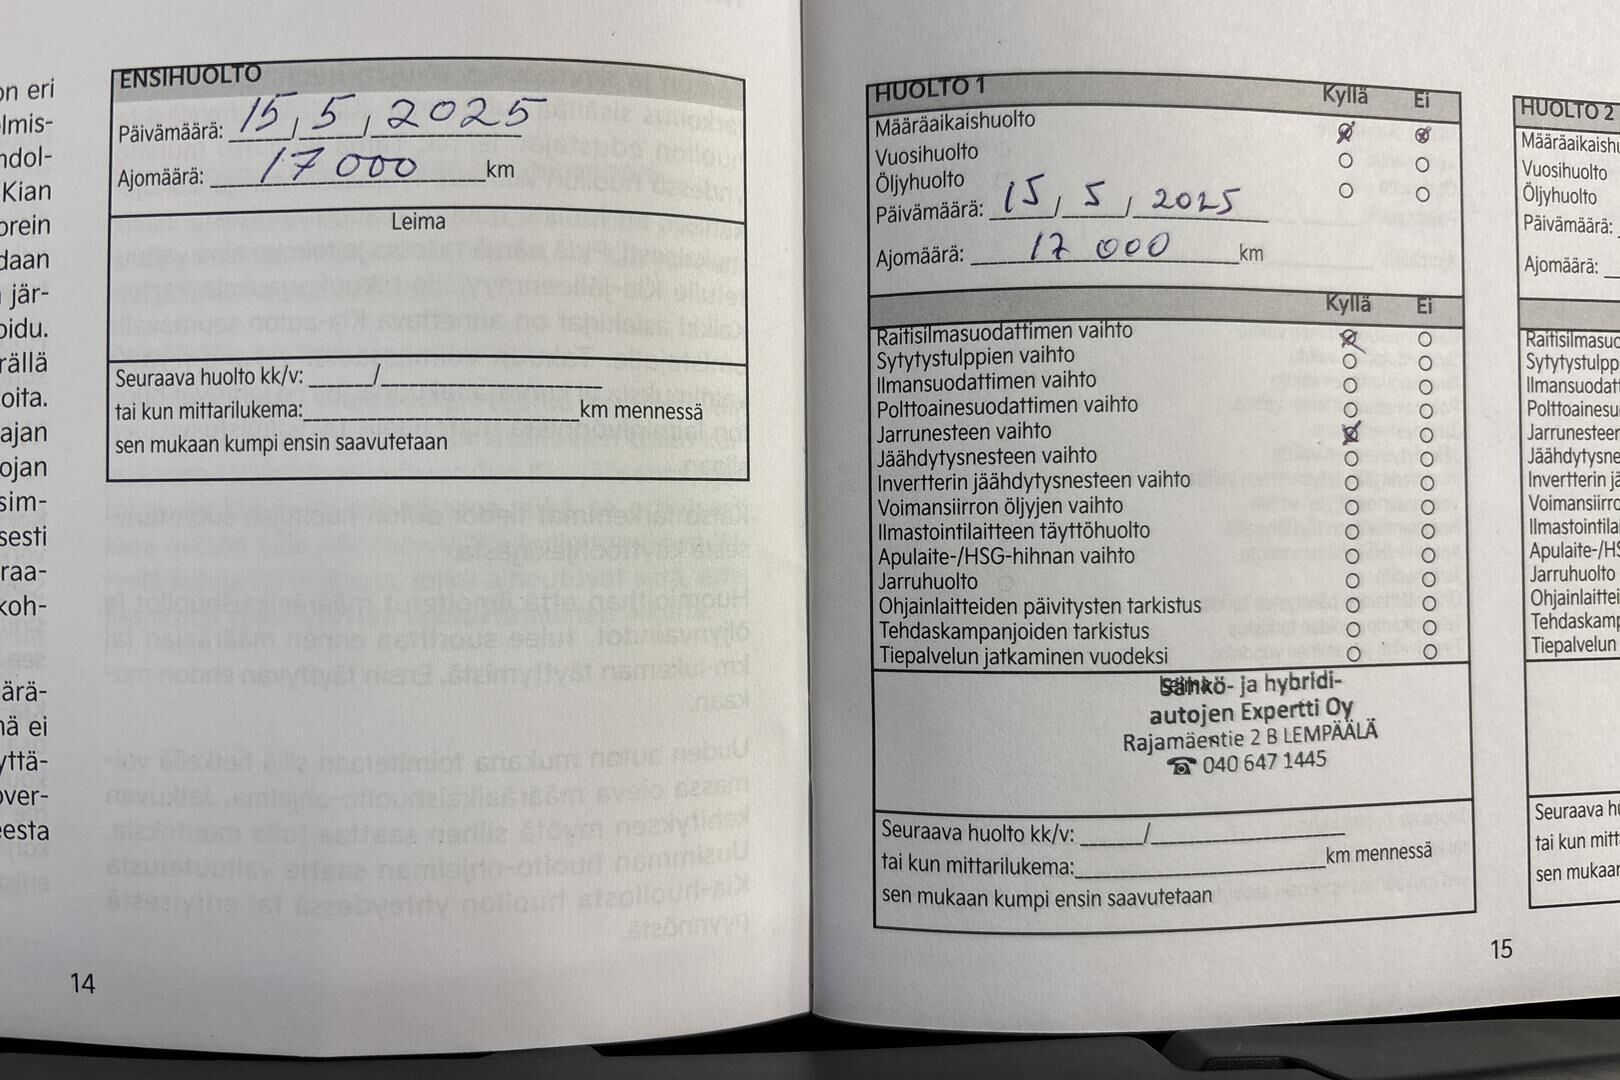 on eri
lmis-
ndol-
Kian
orein
daan
jär-
oidu.
rällä
oita.
ajan
ojan
sim-
sesti
raa-
koh-
ärä-
nä ei
yttä-
over-
eesta
ENSIHUOLTO
Päivämäärä: 15 / 5 / 2025
Ajomäärä: 17 000 km
Leima
Seuraava huolto kk/v: ______/____________________
tai kun mittarilukema:____________________ km mennessä
sen mukaan kumpi ensin saavutetaan
14
HUOLTO 1 Kyllä Ei
Määräaikaishuolto
Vuosihuolto
Öljyhuolto
Päivämäärä: 15 / 5 / 2025
Ajomäärä: 17 000 km
Kyllä Ei
Raitisilmasuodattimen vaihto
Sytytystulppien vaihto
Ilmansuodattimen vaihto
Polttoainesuodattimen vaihto
Jarrunesteen vaihto
Jäähdytysnesteen vaihto
Invertterin jäähdytysnesteen vaihto
Voimansiirron öljyjen vaihto
Ilmastointilaitteen täyttöhuolto
Apulaite-/HSG-hihnan vaihto
Jarruhuolto
Ohjainlaitteiden päivitysten tarkistus
Tehdaskampanjoiden tarkistus
Tiepalvelun jatkaminen vuodeksi
Leima
Sähkö- ja hybridi-
autojen Expertti Oy
Rajamäentie 2 B LEMPÄÄLÄ
☎ 040 647 1445
Seuraava huolto kk/v: ______/____________________
tai kun mittarilukema:____________________ km mennessä
sen mukaan kumpi ensin saavutetaan
15
HUOLTO 2
Määräaikaishu
Vuosihuolto
Öljyhuolto
Päivämäärä:
Ajomäärä:
Raitisilmasuo
Sytytystulpp
Ilmansuodatt
Polttoainesu
Jarrunesteer
Jäähdytysne
Invertterin jä
Voimansiirro
Ilmastointila
Apulaite-/HS
Jarruhuolto
Ohjainlaittei
Tehdaskamp
Tiepalvelun
Seuraava hu
tai kun mitt
sen mukaan